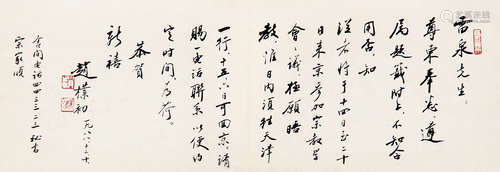 雪泉先生：
尊东奉悉，遵
属题戏附上，不知合
用否？知
从者将于十四日至二十
日来京参加宗教学
会会议，极愿晤
教，惟日内须往天津
一行，十五、六日可回京，请
赐一电话联系，以便约
定时间为荷。
恭贺
新禧
赵朴初
一九八六、十二、十
合同电话四四三三二二秘书
宗家顺